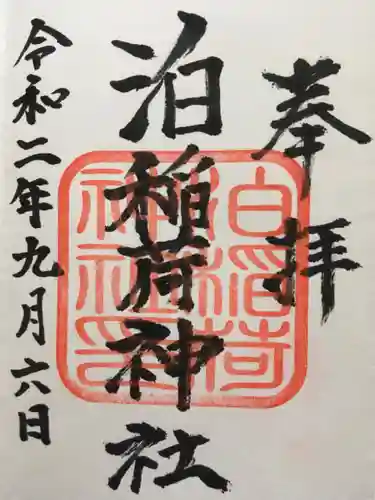 奉拝
泊稲荷神社
令和二年九月六日
泊稲荷
神社印